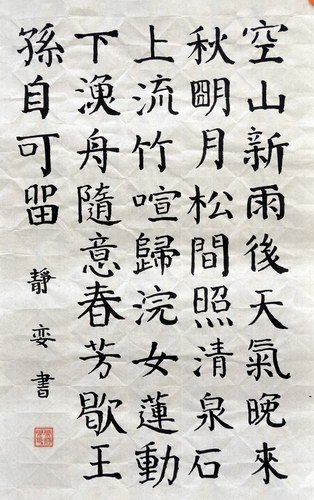 空山新雨後天氣晚來
秋明月松間照清泉石
上流竹喧歸浣女蓮動
下漁舟隨意春芳歇王
孫自可留
靜娈書